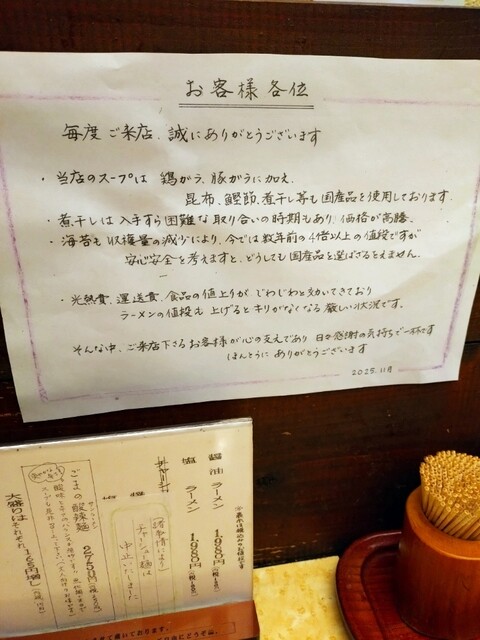 お客様各位
毎度ご来店、誠にありがとうございます
・当店のスープは 鶏ガラ、豚ガラに加え、
昆布、鰹節、煮干し等も国産品を使用しております。
・煮干しは入手すら困難な取り合いの時期もあり、価格が高騰。
・海苔も収穫量の減少により、今では数年前の4倍以上の値段ですが
安心安全を考えますと、どうしても国産品を選ばざるをえません。
・光熱費、運送費、食品の値上りが じわじわと効いてきており
ラーメンの値段も上げるとキリがなくなる厳しい状況です。
そんな中、ご来店下さるお客様が心の支えであり 日々感謝の気持ちで一杯です
ほんとうに ありがとうございます
2025.11月
醤油ラーメン
塩ラーメン
諸事情により
チャーシュー麺は
中止いたしました
ごまの酸辣麺
大盛りはそれぞれ